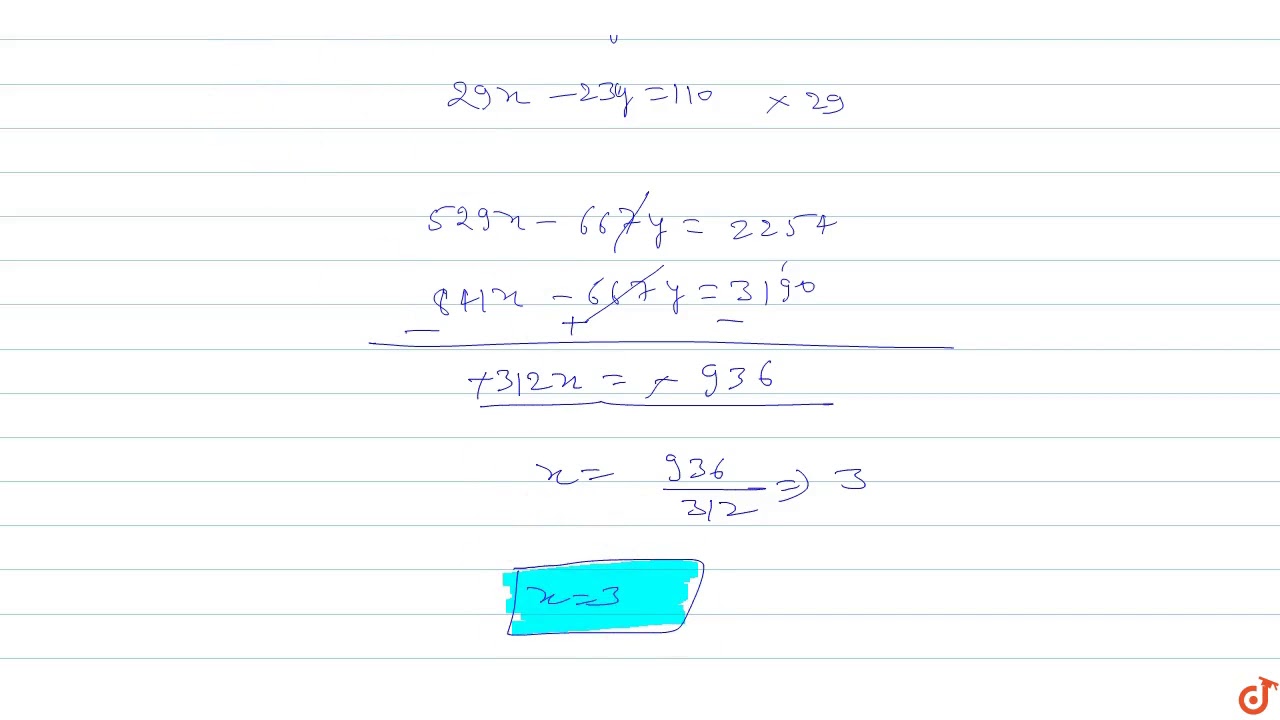 29x - 23y = 110 × 29
529x - 667y = 2254
841x - 667y = 3190
- + -
+312x = + 936
x = 936/312 ⇒ 3
x = 3